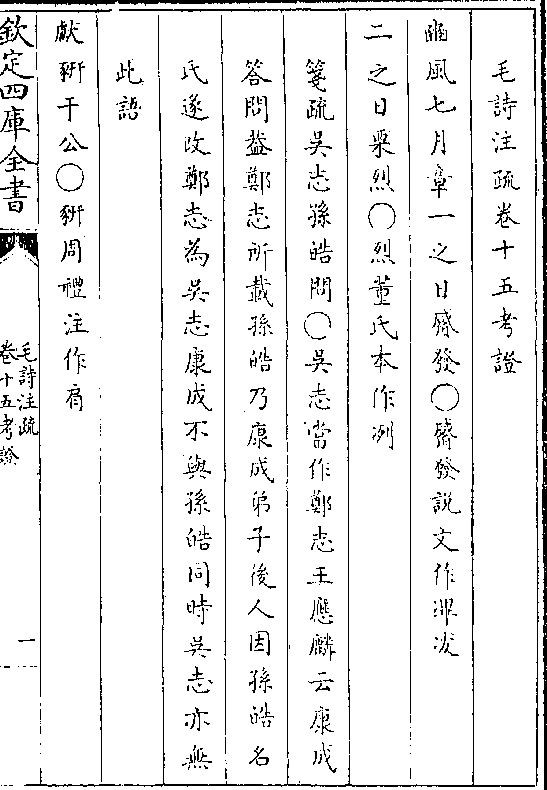 毛詩注疏卷十五考證
豳風七月章一之日觱發○觱發說文作滭冹
二之日栗烈○烈董氏本作冽
箋疏吳志孫皓問○吳志當作鄭志王應麟云康成
答問葢鄭志所載孫皓乃康成弟子後人因孫皓名
氏遂改鄭志為吳志康成不與孫皓同時吳志亦無
此語
獻豜于公○豜周禮注作肩
欽定四庫全書
毛詩注疏
卷十五考證
一